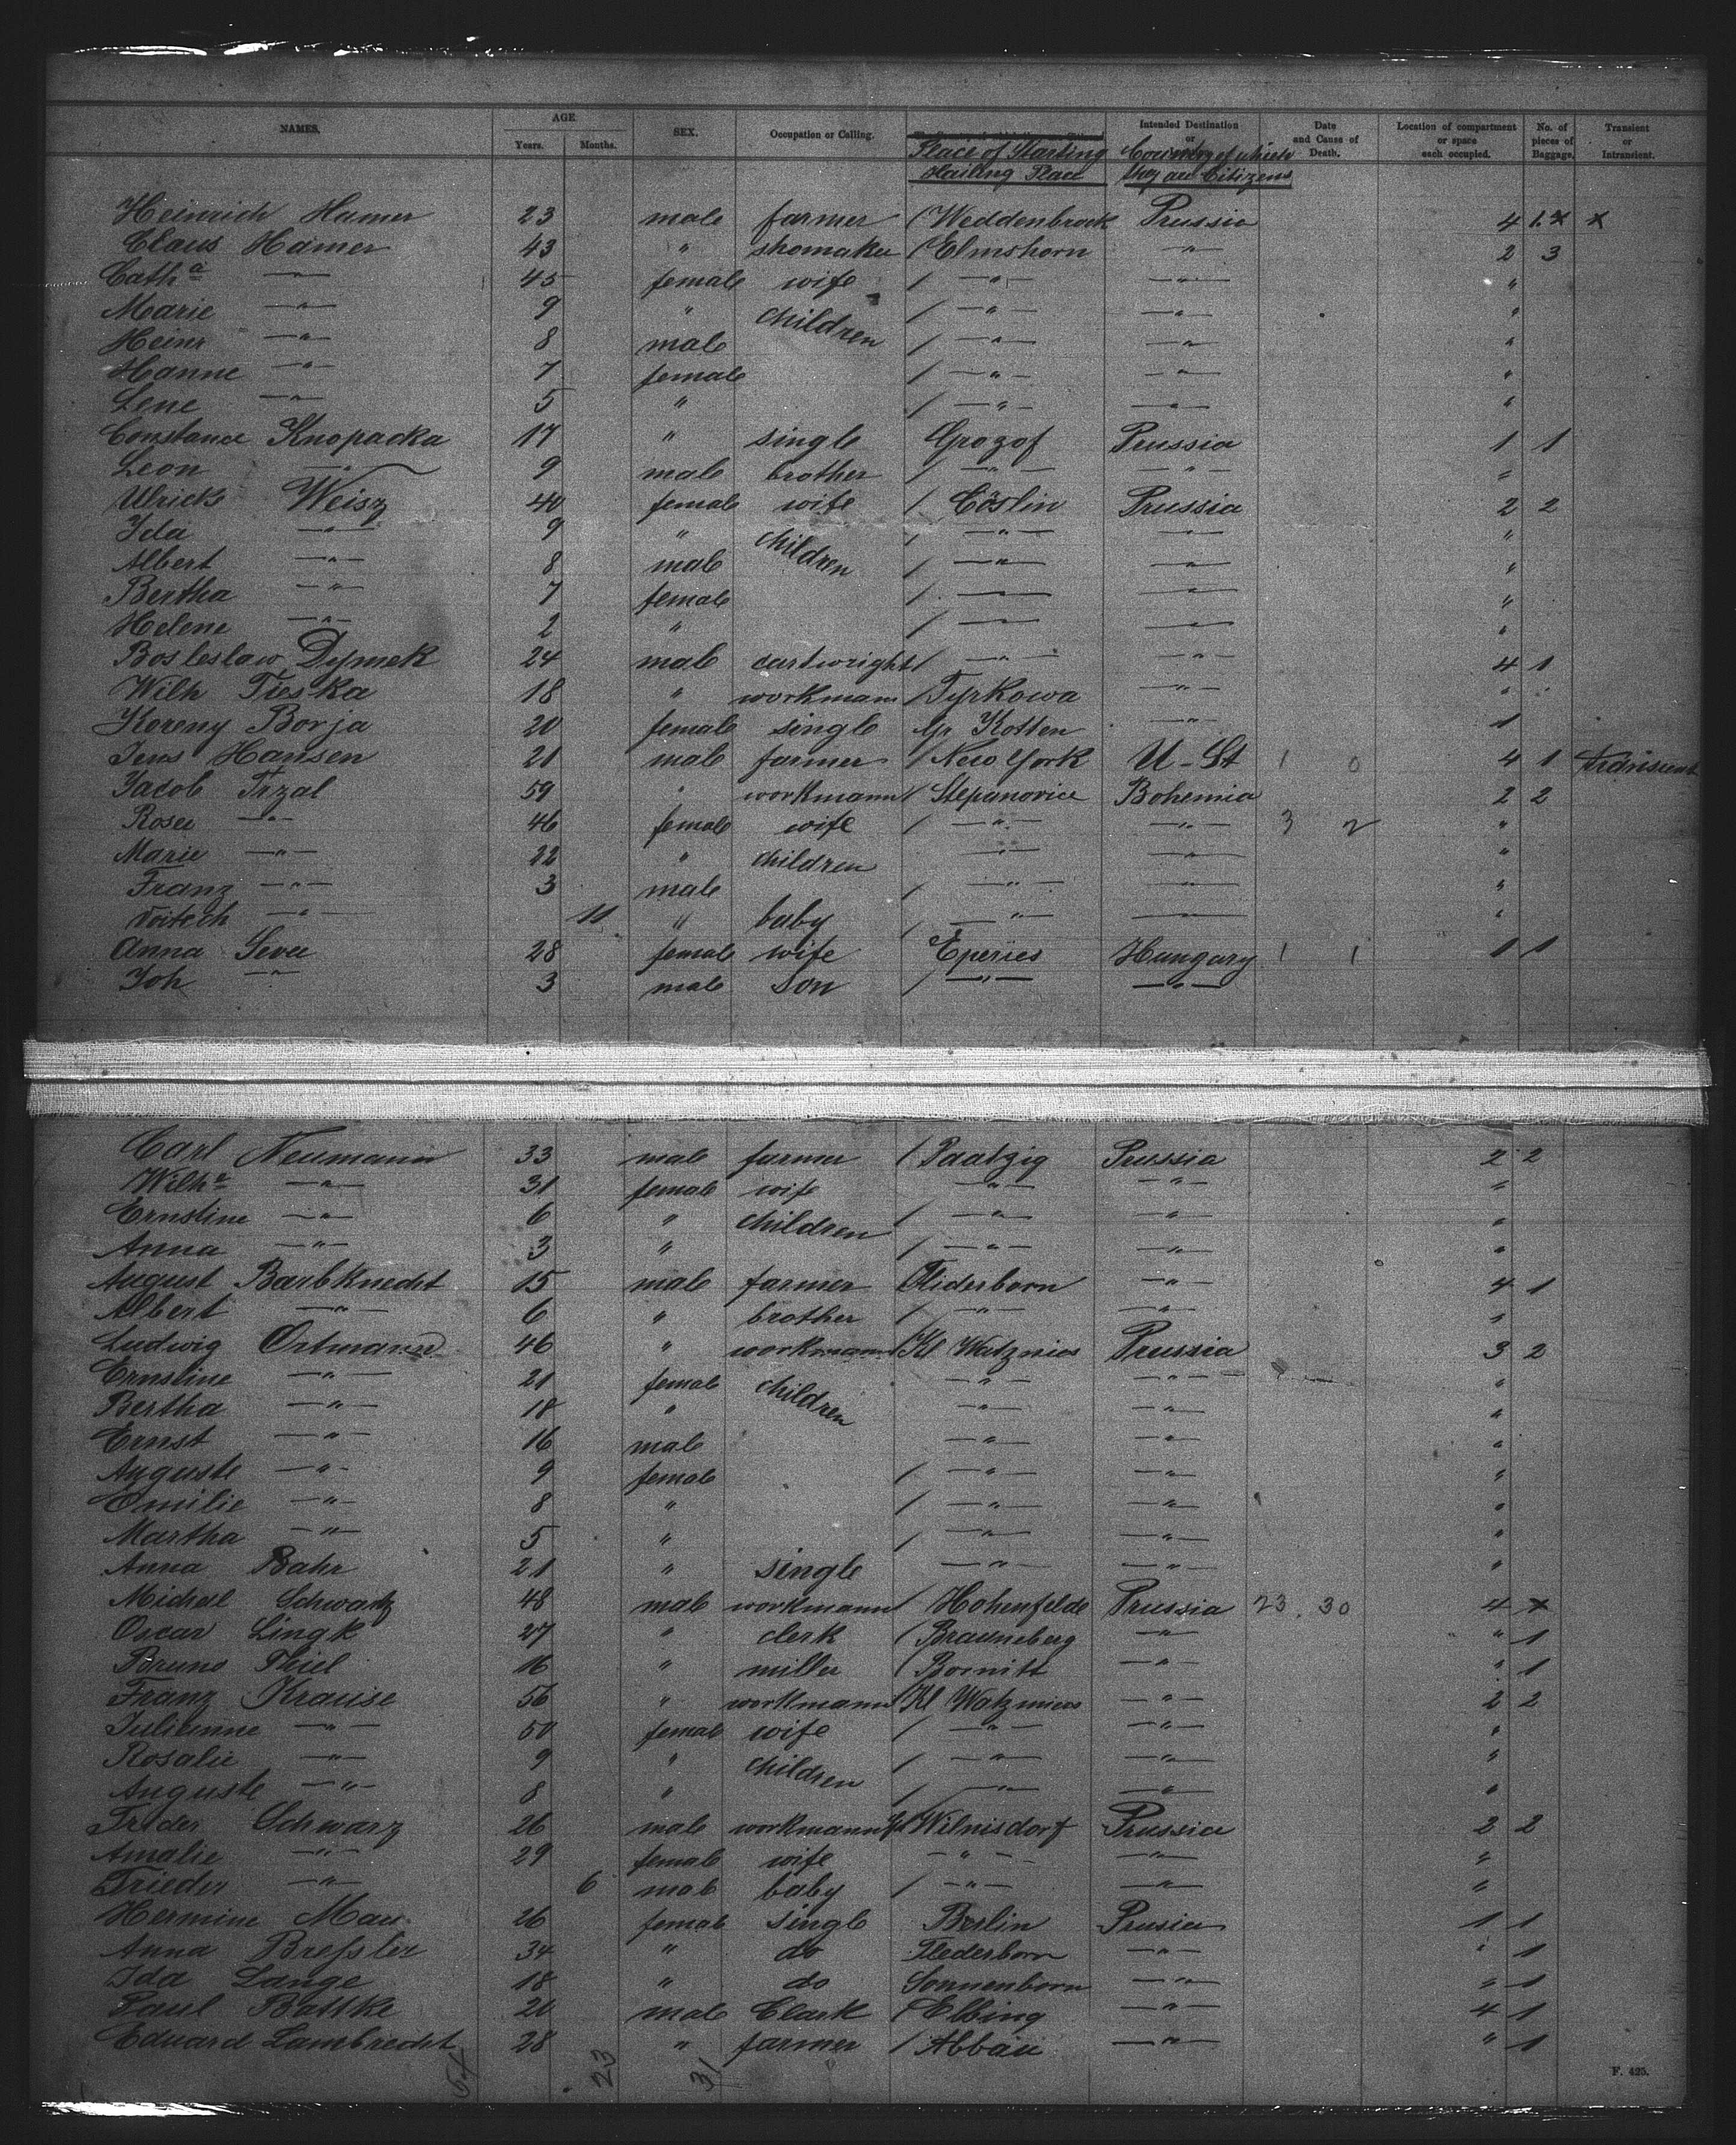 NAMES. AGE. Years. Months. SEX. Occupation or Calling. Place of Starting Hailing Place Intended Destination or Country of which they are Citizens Date and Cause of Death. Location of compartment or space each occupied. No. of pieces of Baggage. Transient or Intransient.
Heinrich Hamer 23 male farmer / Weddenbrock Prussia 4 1. x x
Claus Hamer 43 " shomaker / Elmshorn — " — 2 3
Cath a — " — 45 female wife / — " — — " — "
Marie — " — 9 " children / — " — — " — "
Heinr — " — 8 male / — " — — " — "
Hanne — " — 7 female / — " — — " — "
Lene — " — 5 " / — " — — " — "
Constance Knopacka 17 " single Grozof Prussia 1 1
Leon — " — 9 male brother / — " — — " — "
Ulrick Weisz 40 female wife / Cöslin Prussia 2 2
Ida — " — 9 " children / — " — — " — "
Albert — " — 8 male / — " — — " — "
Bertha — " — 7 female / — " — — " — "
Helene — " — 2 " / — " — — " — "
Bosleslaw Dymek 24 male cartwright / — " — — " — 4 1
Wilh Tieska 18 " workmann / Tyrkowa — " — "
Koreny Borja 20 female single Gr Kotten — " — 1
Jens Hansen 21 male farmer / New York U-St 1 0 4 1 transient
Jacob Trzal 59 " workmann / Stepanovice Bohemia 2 2
Rosa — " — 46 female wife / — " — — " — 3 2 "
Marie — " — 22 " children — " — — " — "
Franz — " — 3 male / — " — — " — "
Voitech — " — 11 " baby / — " — — " — "
Anna Seva 28 female wife Eperies Hungary 1 1 1 1
Joh — " — 3 male son / — " — — " —
Carl Neumann 33 male farmer / Paatzig Prussia 2 2
Wilh e — " — 31 female wife — " — — " — "
Ernstine — " — 6 " children / — " — — " — "
Anna — " — 3 " / — " — — " — "
August Barbknecht 15 male farmer Fliderborn — " — 4 1
Albert — " — 6 " brother / — " — — " — "
Ludwig Ortmann 46 " workmann / Kl Watzmics Prussia 3 2
Ernstine — " — 21 female children — " — — " — "
Bertha — " — 18 " — " — — " — "
Ernst — " — 16 male — " — — " — "
Auguste — " — 9 female / — " — — " — "
Emilie — " — 8 " / — " — — " — "
Martha — " — 5 " / — " — — " — "
Anna Bahr 21 " single — " — — " — "
Michael Schwartz 48 male workmann / Hohenfelde Prussia 23. 30 4 x
Oscar Lingk 27 " clerk / Brauneberg — " — " 1
Bruno Thiel 16 " miller / Bornitt — " — " 1
Franz Krause 56 " workmann / Kl Watzmics — " — 2 2
Julienne — " — 50 female wife / — " — — " — "
Rosalie — " — 9 " children / — " — — " — "
Auguste — " — 8 " / — " — — " — "
Frider Schwarz 26 male workmann / Wilnisdorf Prussia 2 2
Amalie — " — 29 female wife — " — — " — "
Frieder — " — 6 male baby / — " — — " — "
Hermine Mau 26 female single Berlin Prusia 1 1
Anna Bressler 34 " do Flederborn — " — " 1
Ida Lange 18 " do Sonnenborn — " — " 1
Paul Battke 20 male Clark / Elbing — " — 4 1
Eduard Lambrecht 28 " farmer / Abbau — " — " 1
54 23 31
F. 425.